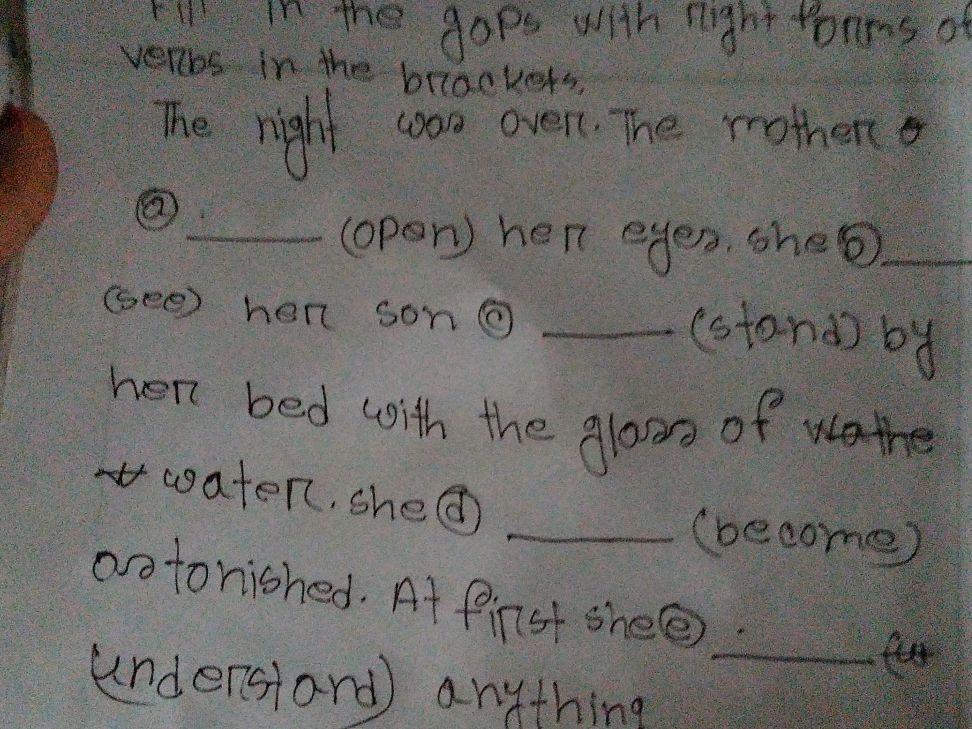 Fill in the gaps with right forms of
verbs in the brackets.
The night was over. The mother
ⓐ ______ (open) her eyes. she ⓑ ____
(see) her son ⓒ ______ (stand) by
her bed with the glass of
water. she ⓓ ______ (become)
astonished. At first she ⓔ ______
(understand) anything